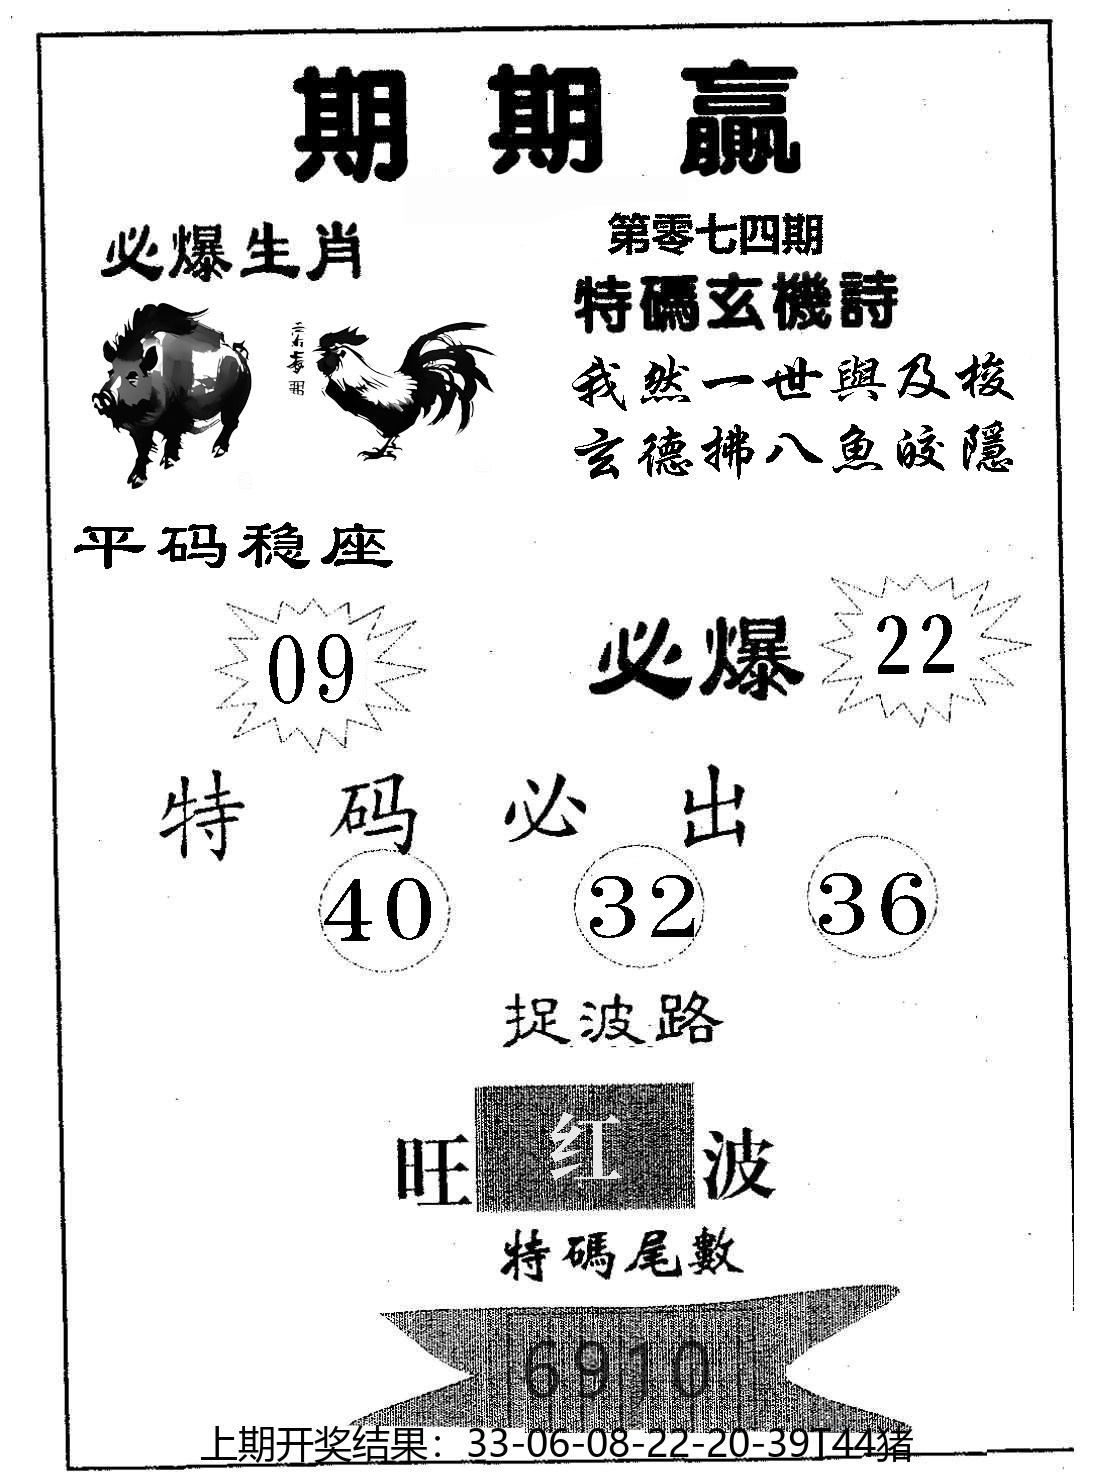 期期贏
必爆生肖
第零七四期
特碼玄機詩
我然一世與及梭
玄德拂八魚皎隱
平码稳座
09
必爆
22
特码必出
40 32 36
捉波路
旺红波
特碼尾數
6910
上期开奖结果：33-06-08-22-20-39T44猪